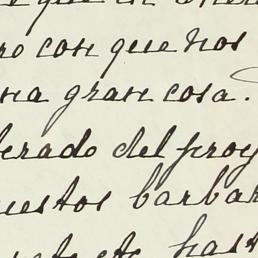 que
ro con que nos
na gran cosa.
erado del proy
uestos barbar
etc hast